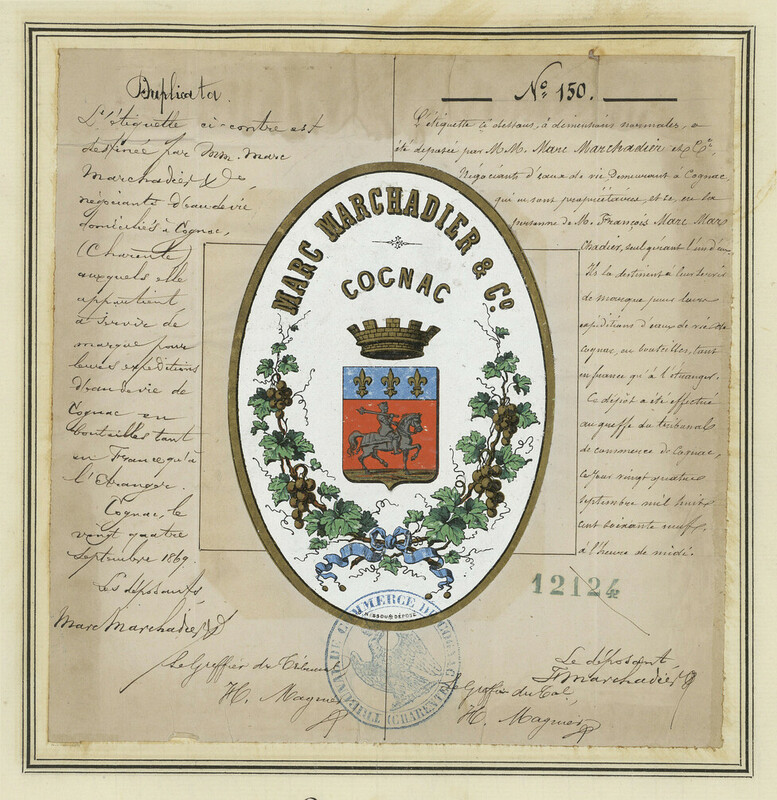 Duplicata.
L'étiquette ci-contre est
destinée par MM. Marc
Marchadier & Cie,
négociants d'eau de vie
domiciliés à Cognac,
(Charente)
auxquels elle
appartient
à servir de
marque pour
leurs expéditions
d'eau de vie de
Cognac en
bouteilles tant
en France qu'à
l'Etranger.
Cognac, le
vingt quatre
septembre 1869.
Les déposants
Marc Marchadier & Cie
Le Greffier du Tribunal
H. Magnier
No 150.
L'étiquette ci dessous, à dimensions normales, a
été déposée par M.M. Marc Marchadier et Cie
Négociants d'eaux de vie demeurant à Cognac
qui en sont propriétaires, et ce, en la
personne de M. François Marc Mar
chadier, seul gérant
Ils la destinent à leur servir
de marque pour leurs
expéditions d'eaux de vie de
cognac, en bouteilles, tant
en france qu'à l'étranger.
Ce dépôt a été effectué
au greffe du tribunal
de commerce de Cognac,
ce jour vingt quatre
septembre mil huit
cent soixante neuf,
à l'heure de midi.
12124
Le déposant
F Marchadier
Le Greffier du Tal.
H. Magnier
MARC MARCHADIER & Co.
COGNAC
DÉPOSÉ
TRIBUNAL DE COMMERCE DE COGNAC
(CHARENTE)